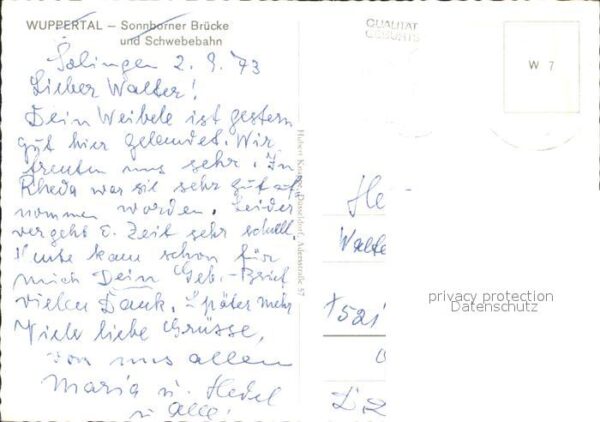 WUPPERTAL – Sonnborner Brücke
und Schwebebahn
Solingen 2. 9. 73
Lieber Walter!
Dein Weibele ist gestern
gut hier gelandet. Wir
freuten uns sehr. In
Rheda war sie sehr gut aufge
nommen worden. Leider
vergeht d. Zeit sehr schnell.
Heute kam schon für
mich Dein Geb.-Brief
vielen Dank. Später mehr
Viele liebe Grüsse,
von uns allen
Maria u. Hedel
u. alle!
Hubert Krause, Düsseldorf, Adersstraße 57
QUALITÄT
W 7
He
Walte
7521
privacy protection
Datenschutz